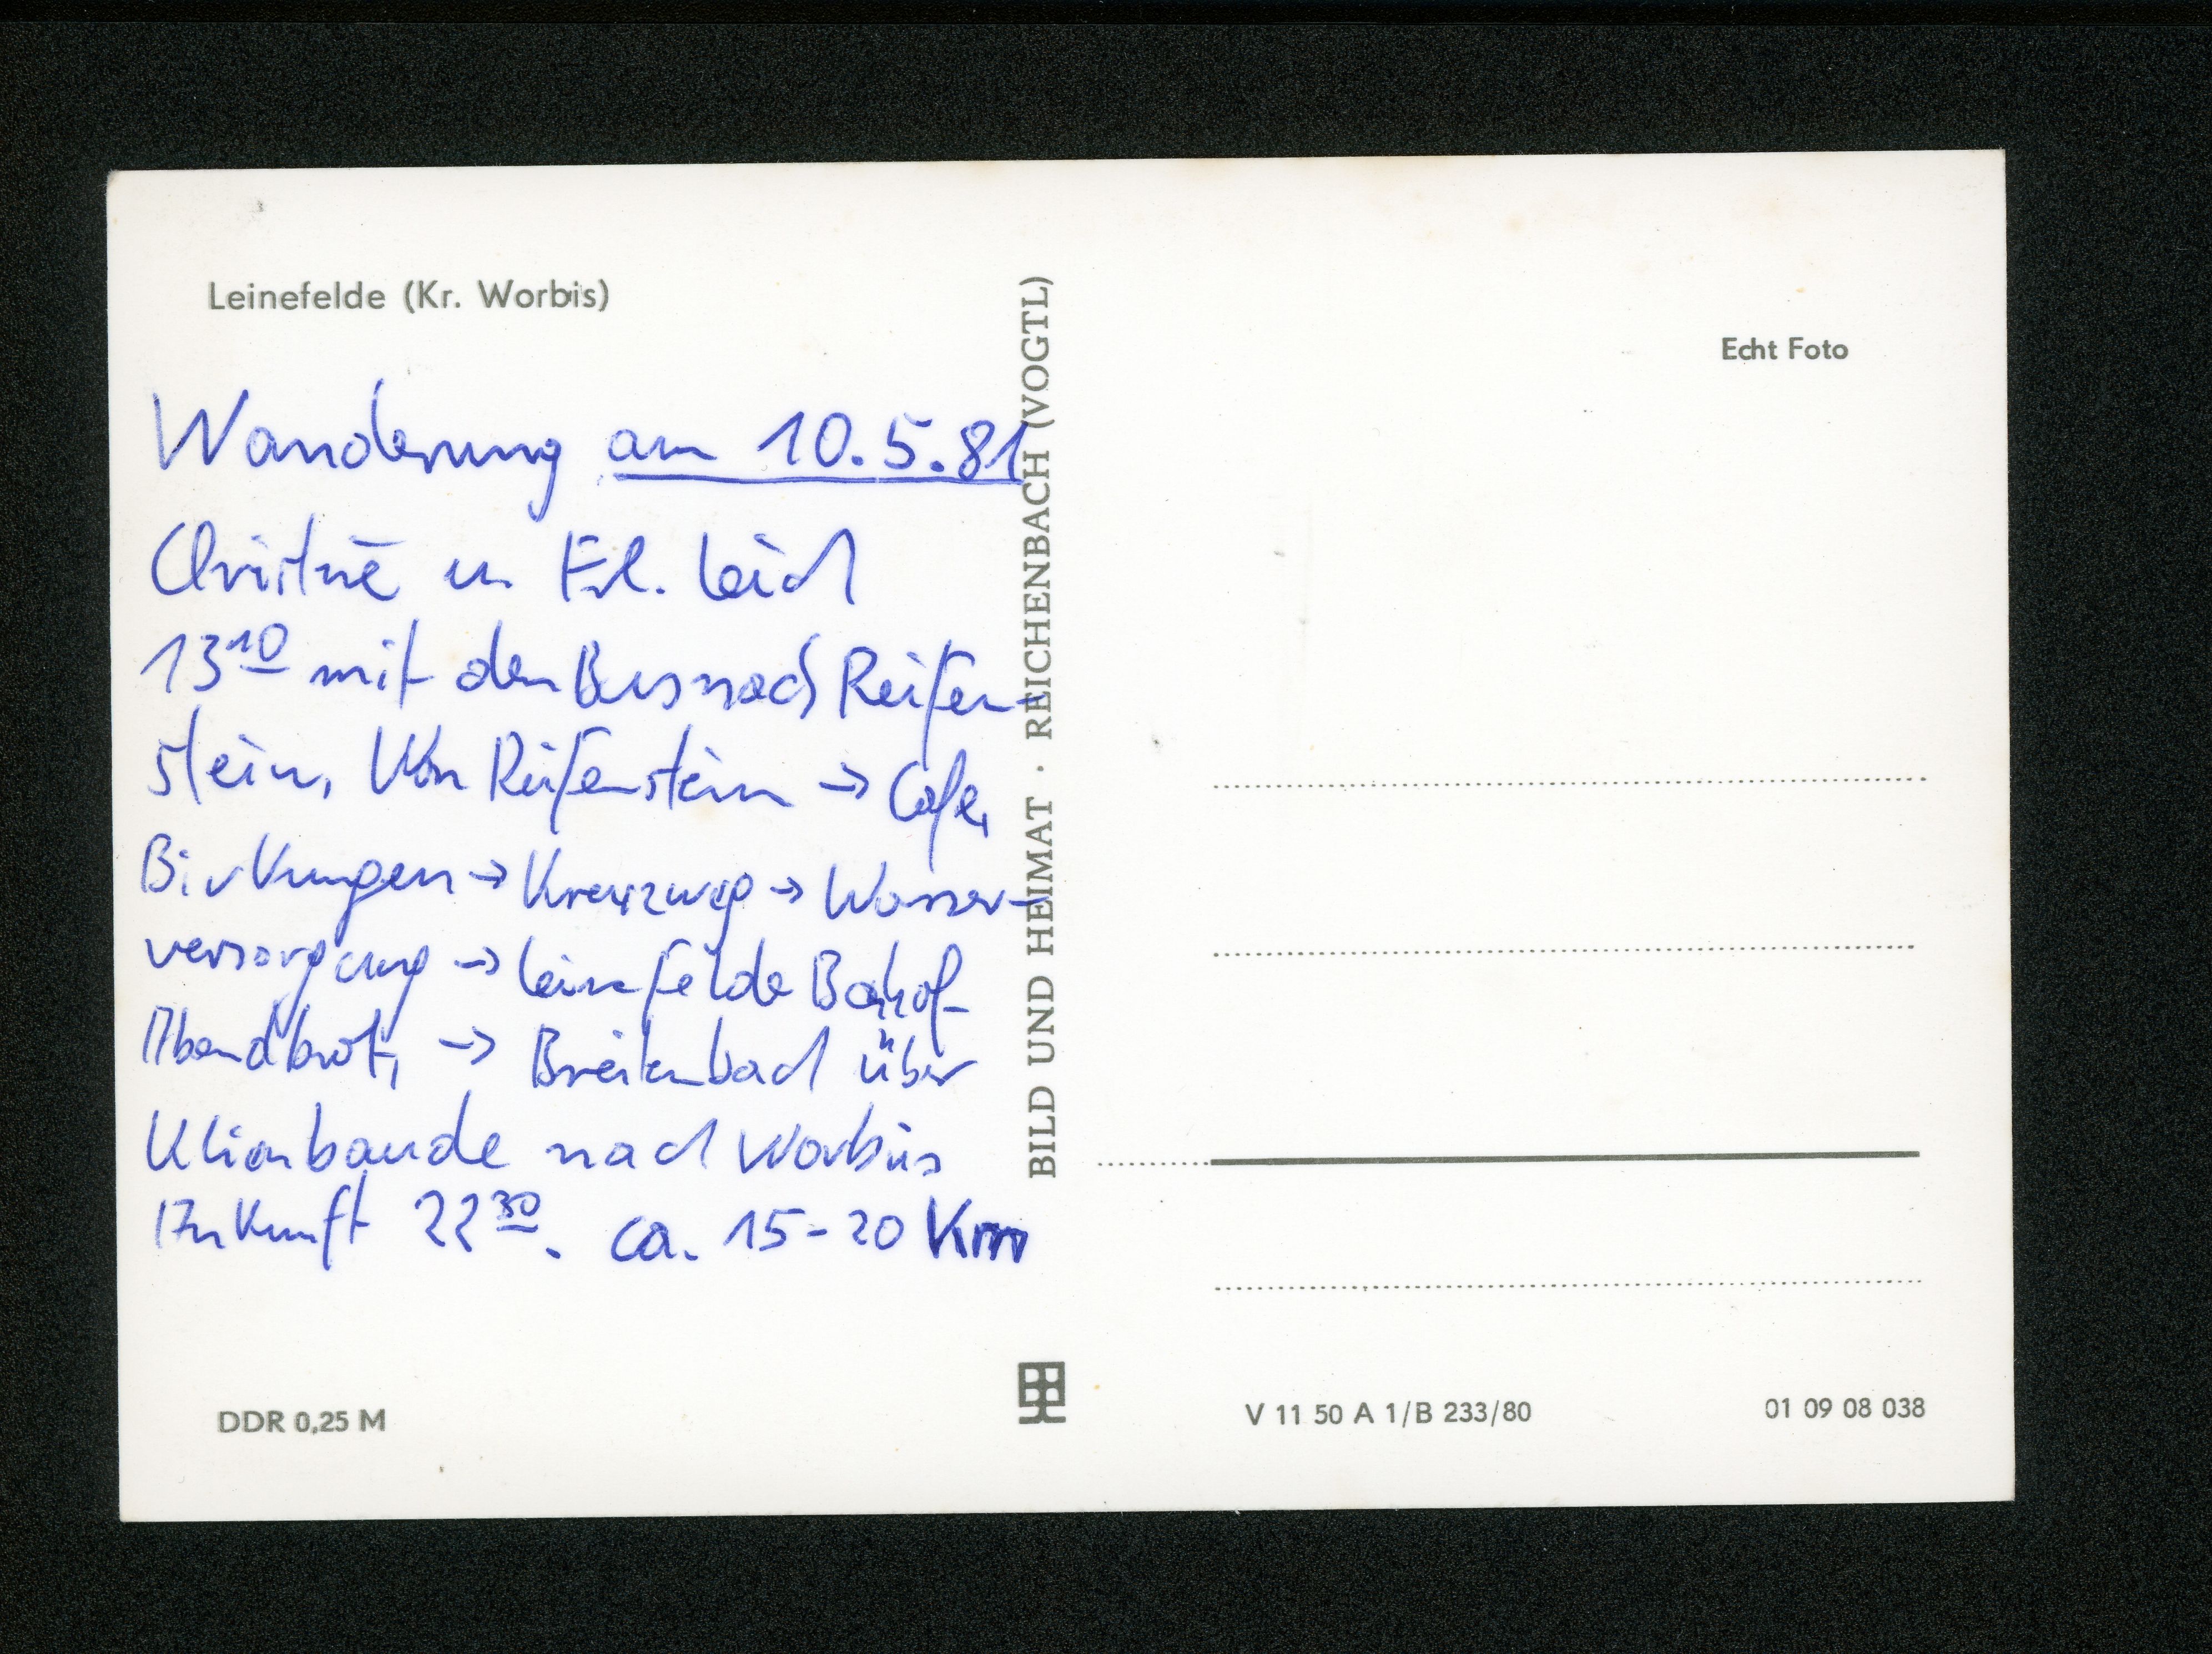 Leinefelde (Kr. Worbis)
Wanderung am 10.5.81
Christine u Frl. Leich
13 10 mit dem Bus nach Reifen-
stein, Von Reifenstein → Cafe,
Birkungen → Kreuzweg → Wasser-
versorgung → Leinefelde Bahnhof-
Abendbrot, → Breitenbach über
nach Worbis
Ankunft 22 30. ca. 15-20 Km
DDR 0,25 M
BILD UND HEIMAT · REICHENBACH (VOGTL)
Echt Foto
V 11 50 A 1/B 233/80
01 09 08 038